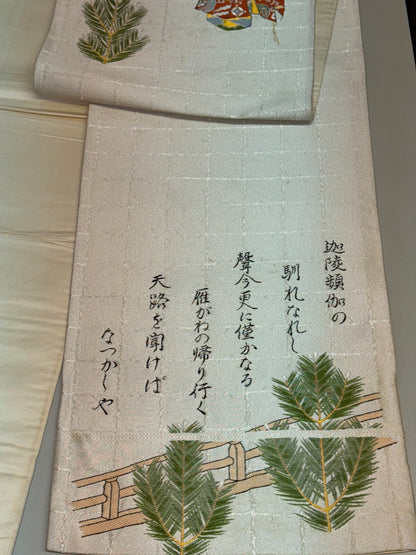 迦陵頻伽の
馴れなれし
聲今更に僅かなる
雁がねの帰り行く
天路を聞けば
なつかしや